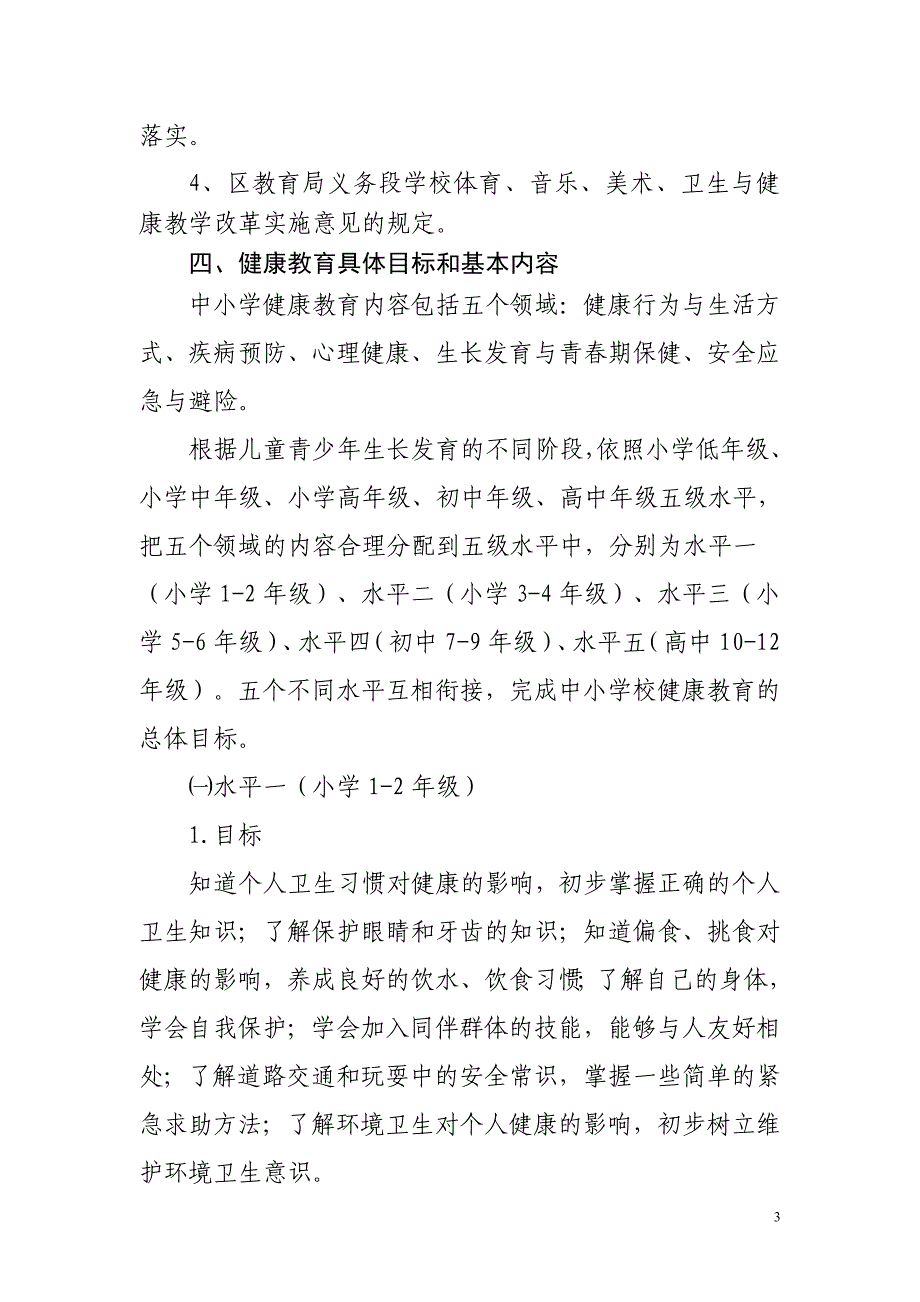 落实。
4、区教育局义务段学校体育、音乐、美术、卫生与健
康教学改革实施意见的规定。
四、健康教育具体目标和基本内容
中小学健康教育内容包括五个领域：健康行为与生活方
式、疾病预防、心理健康、生长发育与青春期保健、安全应
急与避险。
根据儿童青少年生长发育的不同阶段，依照小学低年级、
小学中年级、小学高年级、初中年级、高中年级五级水平，
把五个领域的内容合理分配到五级水平中，分别为水平一
（小学1-2 年级）、水平二（小学3-4 年级）、水平三（小
学5-6 年级）、水平四（初中7-9 年级）、水平五（高中10-12
年级）。五个不同水平互相衔接，完成中小学校健康教育的
总体目标。
㈠水平一（小学1-2 年级）
1.目标
知道个人卫生习惯对健康的影响，初步掌握正确的个人
卫生知识；了解保护眼睛和牙齿的知识；知道偏食、挑食对
健康的影响，养成良好的饮水、饮食习惯；了解自己的身体，
学会自我保护；学会加入同伴群体的技能，能够与人友好相
处；了解道路交通和玩耍中的安全常识，掌握一些简单的紧
急求助方法；了解环境卫生对个人健康的影响，初步树立维
护环境卫生意识。
3